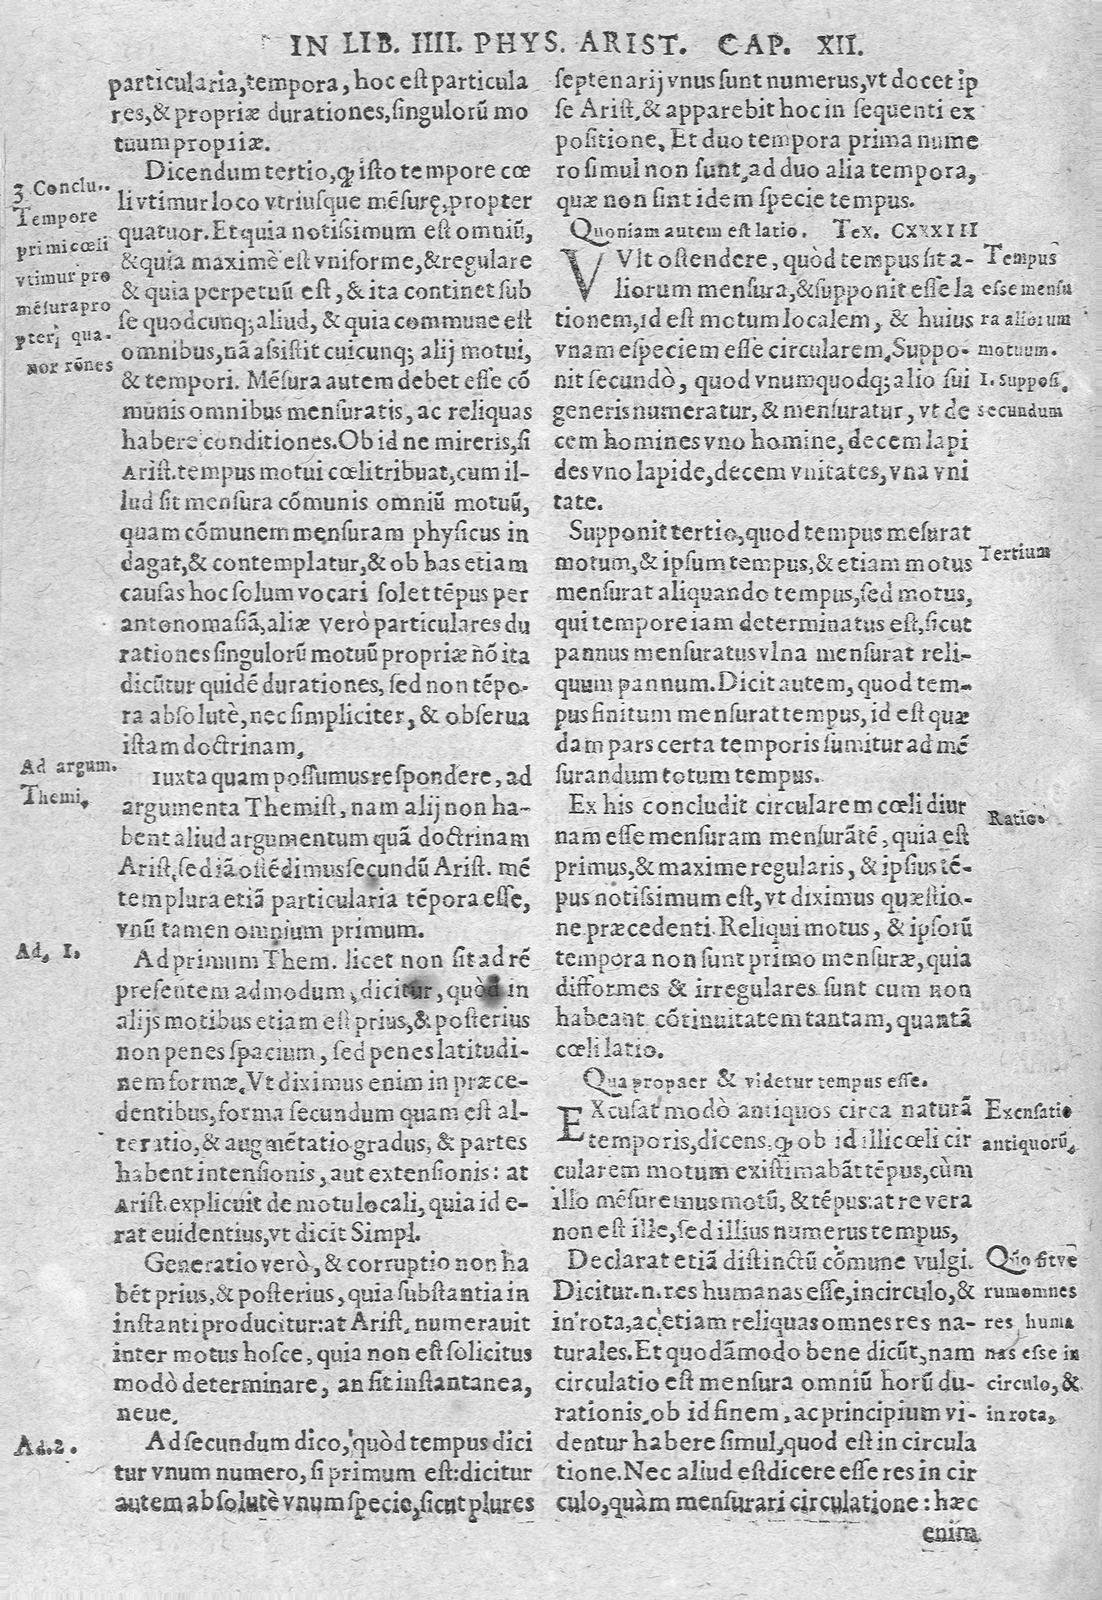 IN LIB. IIII. PHYS. ARIST. CAP. XII.
particularia, tempora, hoc est particula
res, & propriæ durationes, singulorū mo
tuum propriæ.
Dicendum tertio, ꝙ isto tempore cœ
li vtimur loco vtriusque mēsurę, propter
quatuor. Et quia notissimum est omniū,
& quia maximè est vniforme, & regulare
& quia perpetuū est, & ita continet sub
se quodcunq; aliud, & quia commune est
omnibus, nā assistit cuicunq; alij motui,
& tempori. Mēsura autem debet esse cō
munis omnibus mensuratis, ac reliquas
habere conditiones. Ob id ne mireris, si
Arist. tempus motui cœli tribuat, cum il-
lud sit mensura cōmunis omniū motuū,
quam cōmunem mensuram physicus in
dagat, & contemplatur, & ob has etiam
causas hoc solum vocari solet tēpus per
antonomasiā, aliæ verò particulares du
rationes singulorū motuū propriæ nō ita
dicūtur quidē durationes, sed non tēpo-
ra absolutè, nec simpliciter, & obserua
istam doctrinam.
Iuxta quam possumus respondere, ad
argumenta Themist. nam alij non ha-
bent aliud argumentum quā doctrinam
Arist, sed iā ostēdimus secundū Arist. mē
tem plura etiā particularia tēpora esse,
vnū tamen omnium primum.
Ad primum Them. licet non sit ad rē
presentem admodum, dicitur, quòd in
alijs motibus etiam est prius, & posterius
non penes spacium, sed penes latitudi-
nem formæ. Vt diximus enim in præce-
dentibus, forma secundum quam est al-
teratio, & augmētatio gradus, & partes
habent intensionis, aut extensionis: at
Arist. explicuit de motu locali, quia id e-
rat euidentius, vt dicit Simpl.
Generatio verò, & corruptio non ha
bēt prius, & posterius, quia substantia in
instanti producitur: at Arist. numerauit
inter motus hosce, quia non est solicitus
modò determinare, an sit instantanea,
neue.
Ad secundum dico, quòd tempus dici
tur vnum numero, si primum est: dicitur
autem absolutè vnum specie, sicut plures
3 Conclu.
Tempore
primi cœli
vtimur pro
mēsura pro
pter qua-
uor rōnes
Ad argum.
Themi.
Ad. 1.
Ad. 2.
septenarij vnus sunt numerus, vt docet ip
se Arist, & apparebit hoc in sequenti ex
positione. Et duo tempora prima nume
ro simul non sunt, ad duo alia tempora,
quæ non sint idem specie tempus.
Quoniam autem est latio. Tex. CXXXIII
VVlt ostendere, quòd tempus sit a-
liorum mensura, & supponit esse la
tionem, id est motum localem, & huius
vnam especiem esse circularem. Suppo-
nit secundò, quod vnumquodq; alio sui
generis numeratur, & mensuratur, vt de
cem homines vno homine, decem lapi
des vno lapide, decem vnitates, vna vni
tate.
Supponit tertio, quod tempus mesurat
motum, & ipsum tempus, & etiam motus
mensurat aliquando tempus, sed motus,
qui tempore iam determinatus est, sicut
pannus mensuratus vlna mensurat reli-
quum pannum. Dicit autem, quod tem-
pus finitum mensurat tempus, id est quæ
dam pars certa temporis sumitur ad mē
surandum totum tempus.
Ex his concludit circularem cœli diur
nam esse mensuram mensurātē, quia est
primus, & maxime regularis, & ipsius tē-
pus notissimum est, vt diximus quæstio-
ne præcedenti. Reliqui motus, & ipsorū
tempora non sunt primo mensuræ, quia
difformes & irregulares sunt cum non
habeant cōtinuitatem tantam, quantā
cœli latio.
Qua propaer & videtur tempus esse.
EXcusat modò antiquos circa naturā
temporis, dicens. ꝙ ob id illi cœli cir
cularem motum existimabāt tēpus, cùm
illo mēsuremus motū, & tēpus: at re vera
non est ille, sed illius numerus tempus,
Declarat etiā distinctū cōmune vulgi.
Dicitur. n. res humanas esse, in circulo, &
in rota, ac etiam reliquas omnes res na-
turales. Et quodāmodo bene dicūt, nam
circulatio est mensura omniū horū du-
rationis, ob id finem, ac principium vi-
dentur habere simul, quod est in circula
tione. Nec aliud est dicere esse res in cir
culo, quàm mensurari circulatione: hæc
enim
Tempus
esse mensu
ra aliorum
motuum.
1. Supposi.
secundum
Tertium
Ratio.
Excusatio
antiquorū.
Quō sit vē
rum omnes
res huma
nas esse in
circulo, &
in rota,